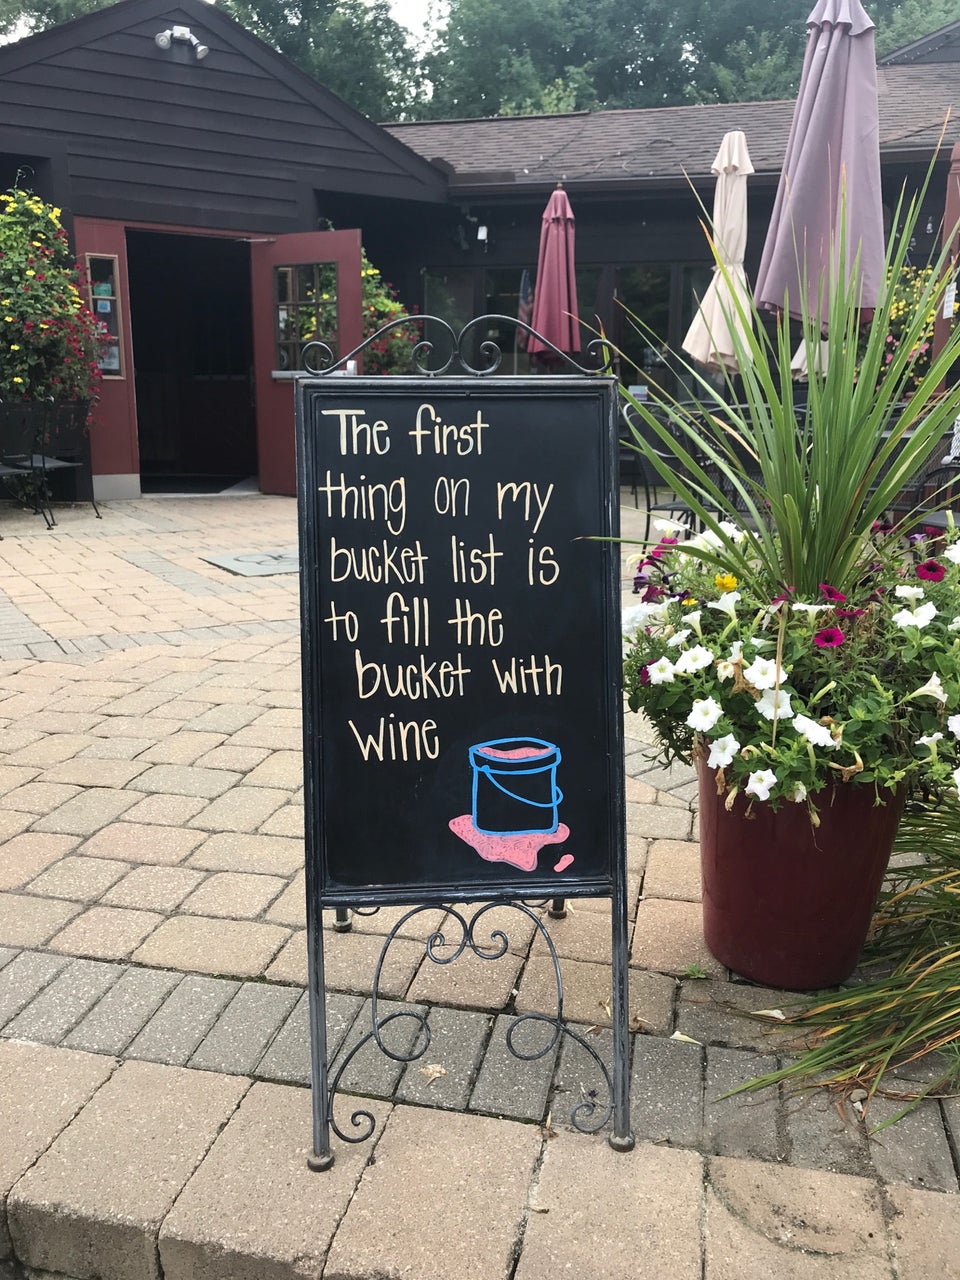 The first
thing on my
bucket list is
to fill the
bucket with
wine